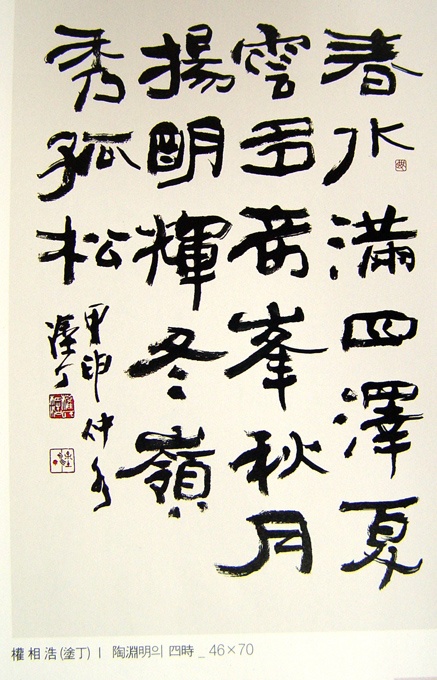 春水滿四澤夏
雲多奇峯秋月
揚明輝冬嶺
秀孤松
甲申仲
塗丁
權相浩(塗丁) ㅣ 陶淵明의 四時 _ 46×70